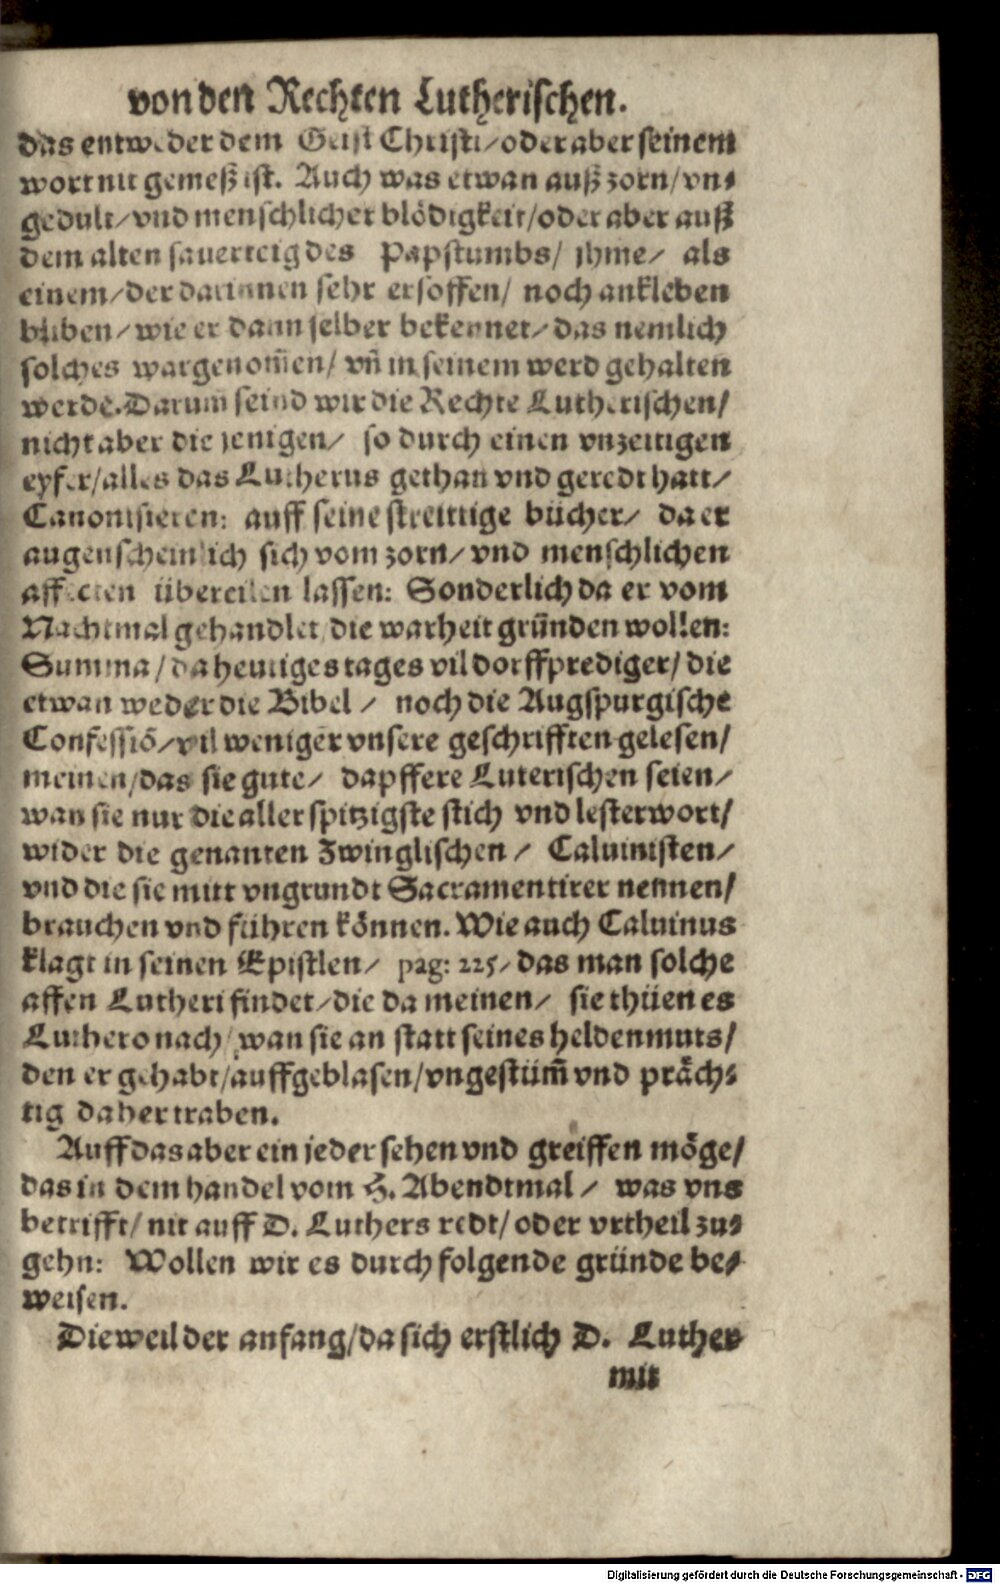 von den Rechten Lutherischen.
das entweder dem Geist Christi/oder aber seinem
wort nit gemeß ist. Auch was etwan auß zorn/vn⸗
gedult/vnd menschlicher blödigkeit/oder aber auß
dem alten sauerteig des Papstumbs/ jhme/ als
einem/der darinnen sehr ersoffen/ noch ankleben
bliben/wie er dann selber bekennet/das nemlich
solches wargenom̃en/vñ in seinem werd gehalten
werde.Darum seind wir die Rechte Lutherischen/
nicht aber die jenigen/ so durch einen vnzeitigen
eyfer/alles das Lutherus gethan vnd geredt hatt/
Canonisieren: auff seine streittige bücher/ da er
augenscheinlich sich vom zorn/vnd menschlichen
affecten übereilen lassen: Sonderlich da er vom
Nachtmal gehandlet/die warheit grůnden wollen:
Summa/da heutiges tages vil dorffprediger/die
etwan weder die Bibel/ noch die Augspurgische
Confessiõ/vil weniger vnsere geschrifften gelesen/
meinen/das sie gute/ dapffere Luterischen seien/
wan sie nur die aller spitzigste stich vnd lesterwort/
wider die genanten Zwinglischen/ Caluinisten/
vnd die sie mitt vngrundt Sacramentirer nennen/
brauchen vnd führen können. Wie auch Caluinus
klagt in seinen Epistlen/ pag: 225/das man solche
affen Lutheri findet/die da meinen/ sie thüen es
Luthero nach/wan sie an statt seines heldenmuts/
den er gehabt/auffgeblasen/vngestüm̃ vnd präch⸗
tig daher traben.
Auff das aber ein jeder sehen vnd greiffen möge/
das in dem handel vom H. Abendtmal/ was vns
betrifft/nit auff D. Luthers redt/oder vrtheil zu⸗
gehn: Wollen wir es durch folgende gründe be⸗
weisen.
Dieweil der anfang/da sich erstlich D. Luther
mit
Digitalisierung gefördert durch die Deutsche Forschungsgemeinschaft - DFG